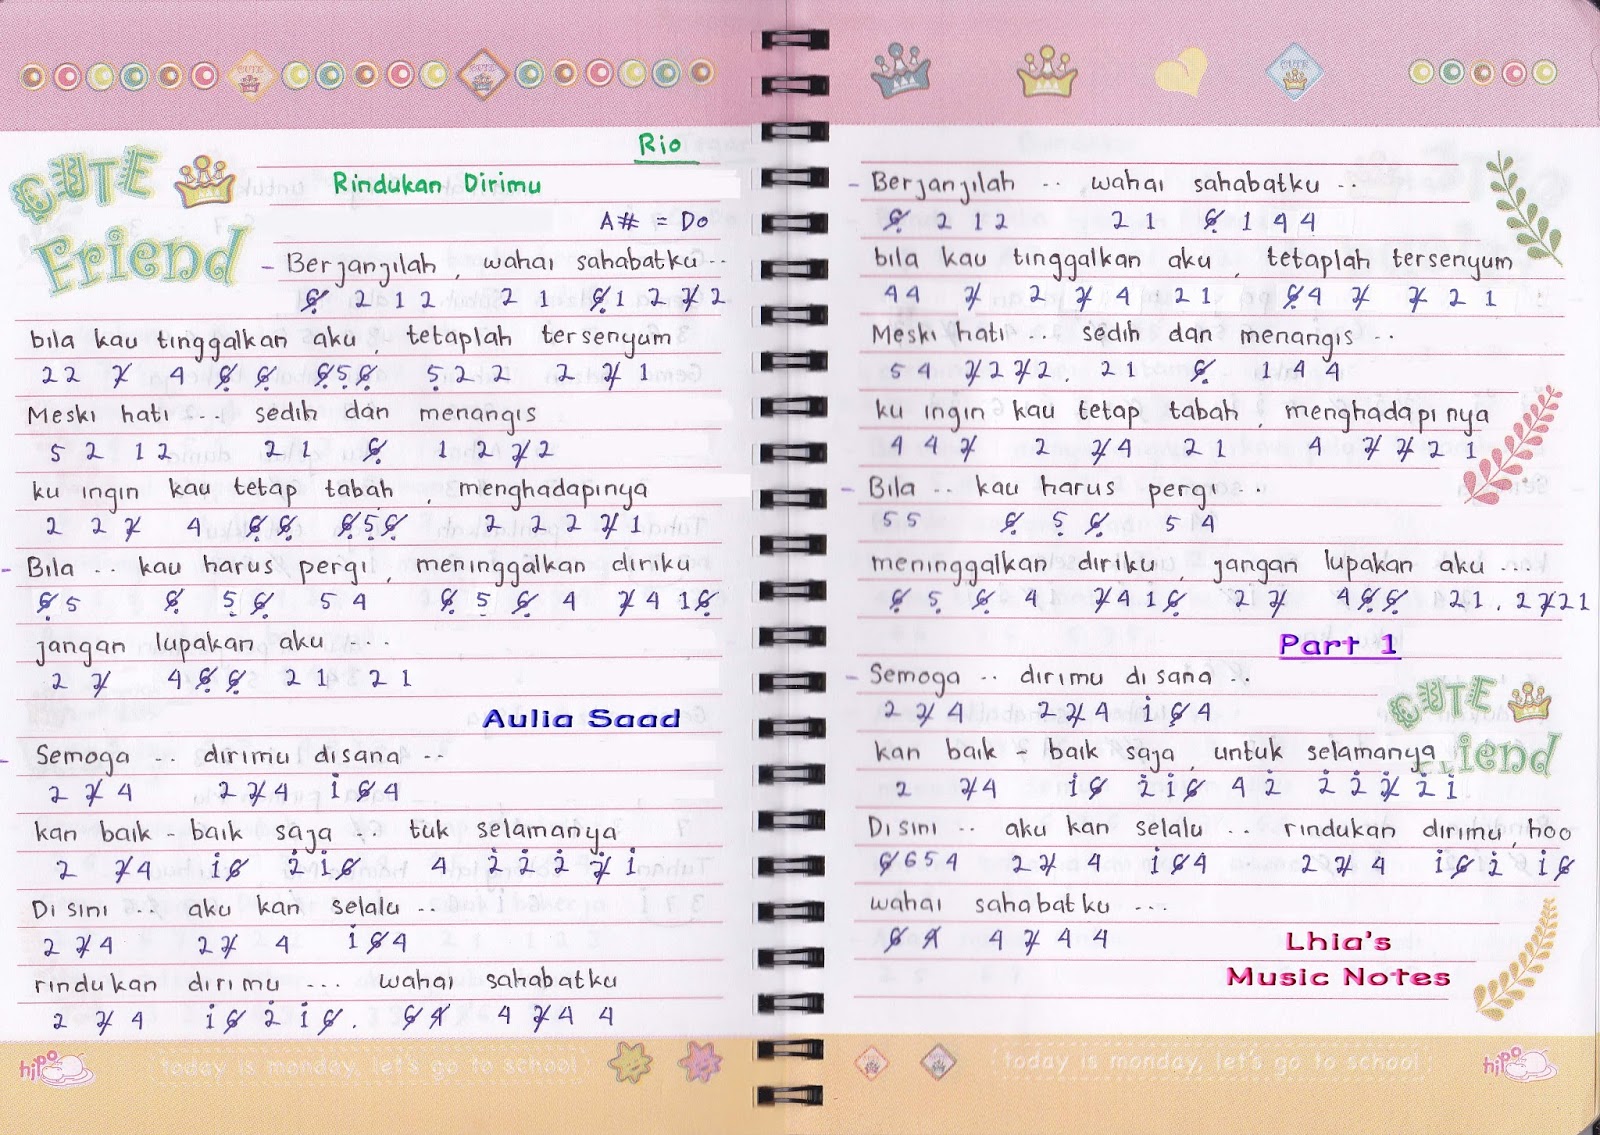 CUTE
CUTE
Rio
CUTE
Friend
Rindukan Dirimu
A# = Do
- Berjanjilah , wahai sahabatku ..
6̣ 2 1 2 2 1 6̣ 1 2 2̸ 2
bila kau tinggalkan aku , tetaplah tersenyum
2 2 2̸ 4 6̣ 6̣ 6̣ 5̣ 6̣ 5̣ 2 2 2 2̸ 1
Meski hati ... sedih dan menangis
5 2 1 2 2 1 6̣ 1 2 2̸ 2
ku ingin kau tetap tabah , menghadapinya
2 2 2̸ 4 6̣ 6̣ 6̣ 5̣ 6̣ 2 2 2 2̸ 1
- Bila .. kau harus pergi , meninggalkan diriku
6̣ 5 6̣ 5̣ 6̣ 5 4 6̣ 5̣ 6̣ 4 2̸ 4 1 6̣
jangan lupakan aku ....
2 2̸ 4 6̣ 6̣ 2 1 2 1
Aulia Saad
- Semoga .. dirimu disana ..
2 2̸ 4 2 2̸ 4 1̇ 6̸ 4
kan baik - baik saja ... tuk selamanya
2 2̸ 4 1̇ 6̸ 2̇ 1̇ 6̸ 4 2̇ 2̇ 2̇ 2̸̇ 1̇
Disini .. aku kan selalu ..
2 2̸ 4 2 2̸ 4 1̇ 6̸ 4
rindukan dirimu ... wahai sahabatku
2 2̸ 4 1̇ 6̸ 2̇ 1̇ 6̸ . 6̸ 4̸ 4 2̸ 4 4
hipo
today is monday, let's go to school
CUTE
- Berjanjilah .. , wahai sahabatku ..
6̣ 2 1 2 2 1 6̣ 1 4 4
bila kau tinggalkan aku , tetaplah tersenyum
4 4 2̸ 2 2̸ 4 2 1 6̣ 4 2̸ 2̸ 2 1
Meski hati ... sedih dan menangis ..
5 4 2̸ 2 2̸ 2 . 2 1 6̣ 1 4 4
ku ingin kau tetap tabah , menghadapinya
4 4 2̸ 2 2̸ 4 2 1 4 2̸ 2̸ 2 1
- Bila .. kau harus pergi ...
5 5 6̣ 5̣ 6̣ 5 4
meninggalkan diriku , jangan lupakan aku ....
6̣ 5̣ 6̣ 4 2̸ 4 1 6̣ 2 2̸ 4 6̣ 6̣ 2 1 . 2 2̸ 2 1
Part 1
- Semoga .. dirimu disana .
2 2̸ 4 2 2̸ 4 1̇ 6̸ 4
CUTE
kan baik - baik saja , untuk selamanya
Friend
2 2̸ 4 1̇ 6̸ 2̇ 1̇ 6̸ 4 2̇ 2̇ 2̇ 2̸̇ 2̇ 1̇
Disini .. aku kan selalu .. rindukan dirimu , hoo
6̸ 6 5 4 2 2̸ 4 1̇ 6̸ 4 2 2̸ 4 1̇ 6̸ 2̇ 1̇ 6̸
wahai sahabatku ...
6̸ 4̸ 4 2̸ 4 4
Lhia's
Music Notes
today is monday, let's go to school
hipo